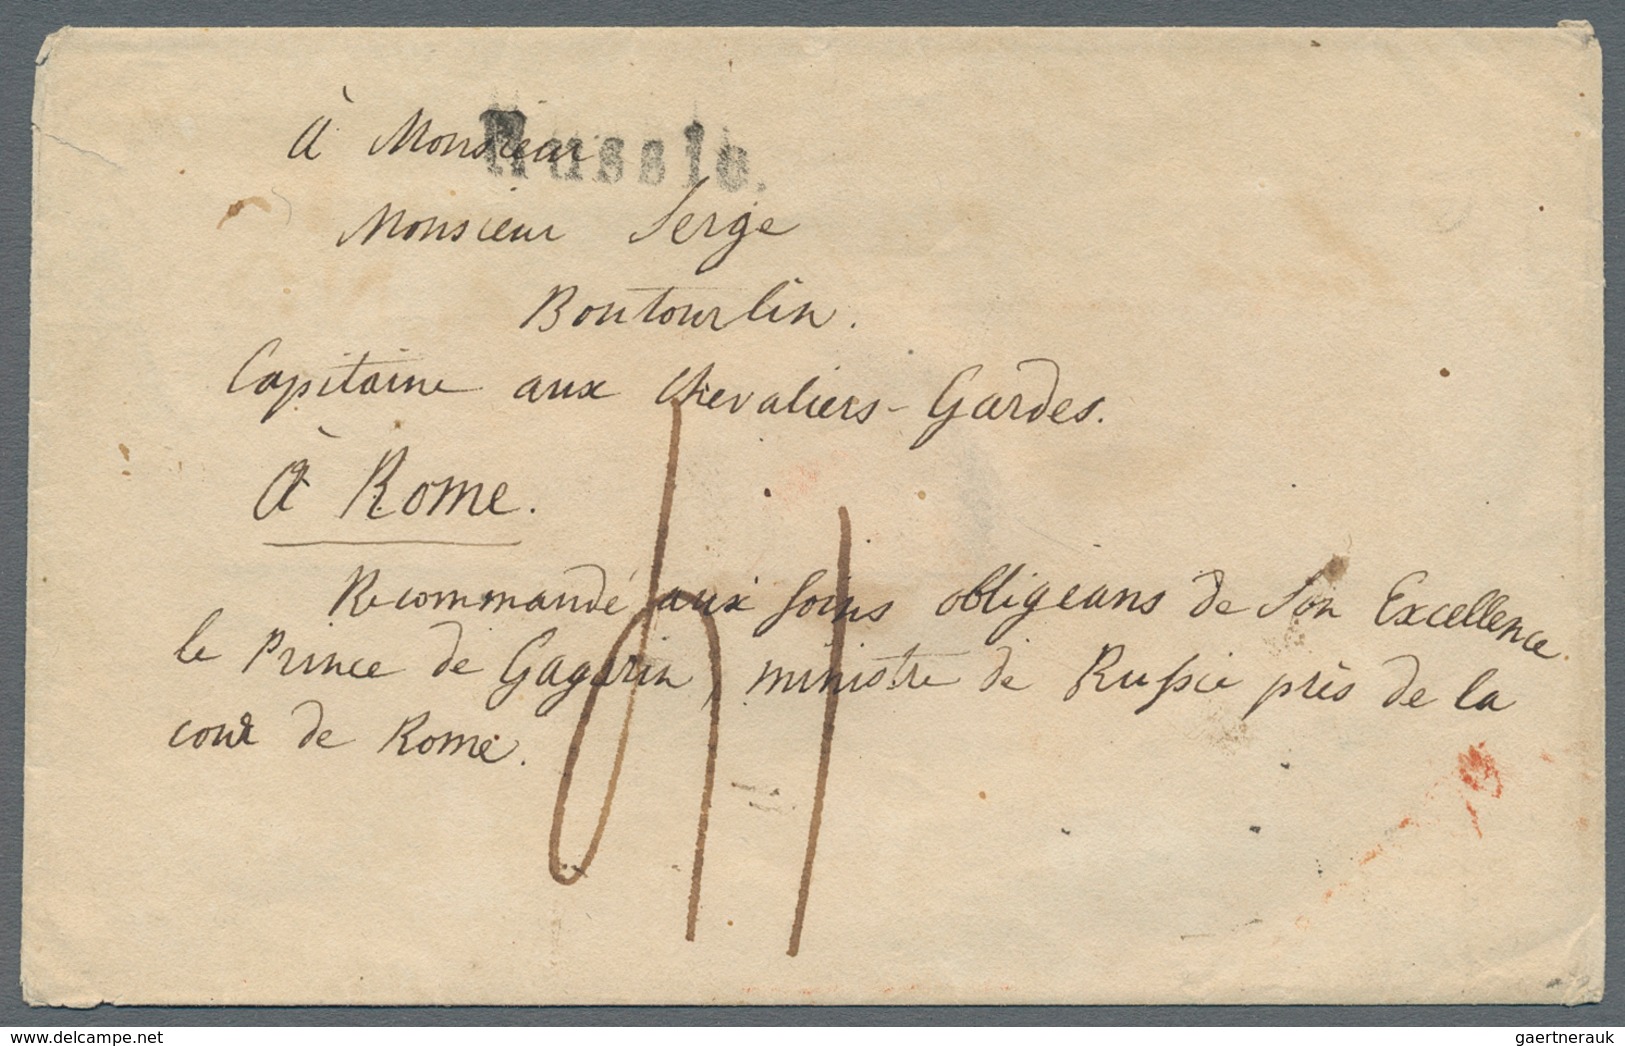 à Monsieur
Russie.
Monsieur Serge
Boutourlin.
Capitaine aux Chevaliers-Gardes.
à Rome.
Recommandé aux soins obligeans de Son Excellence
le Prince de Gagarin, ministre de Russie près de la
cour de Rome.
www.delcampe.net
gaertnerauk